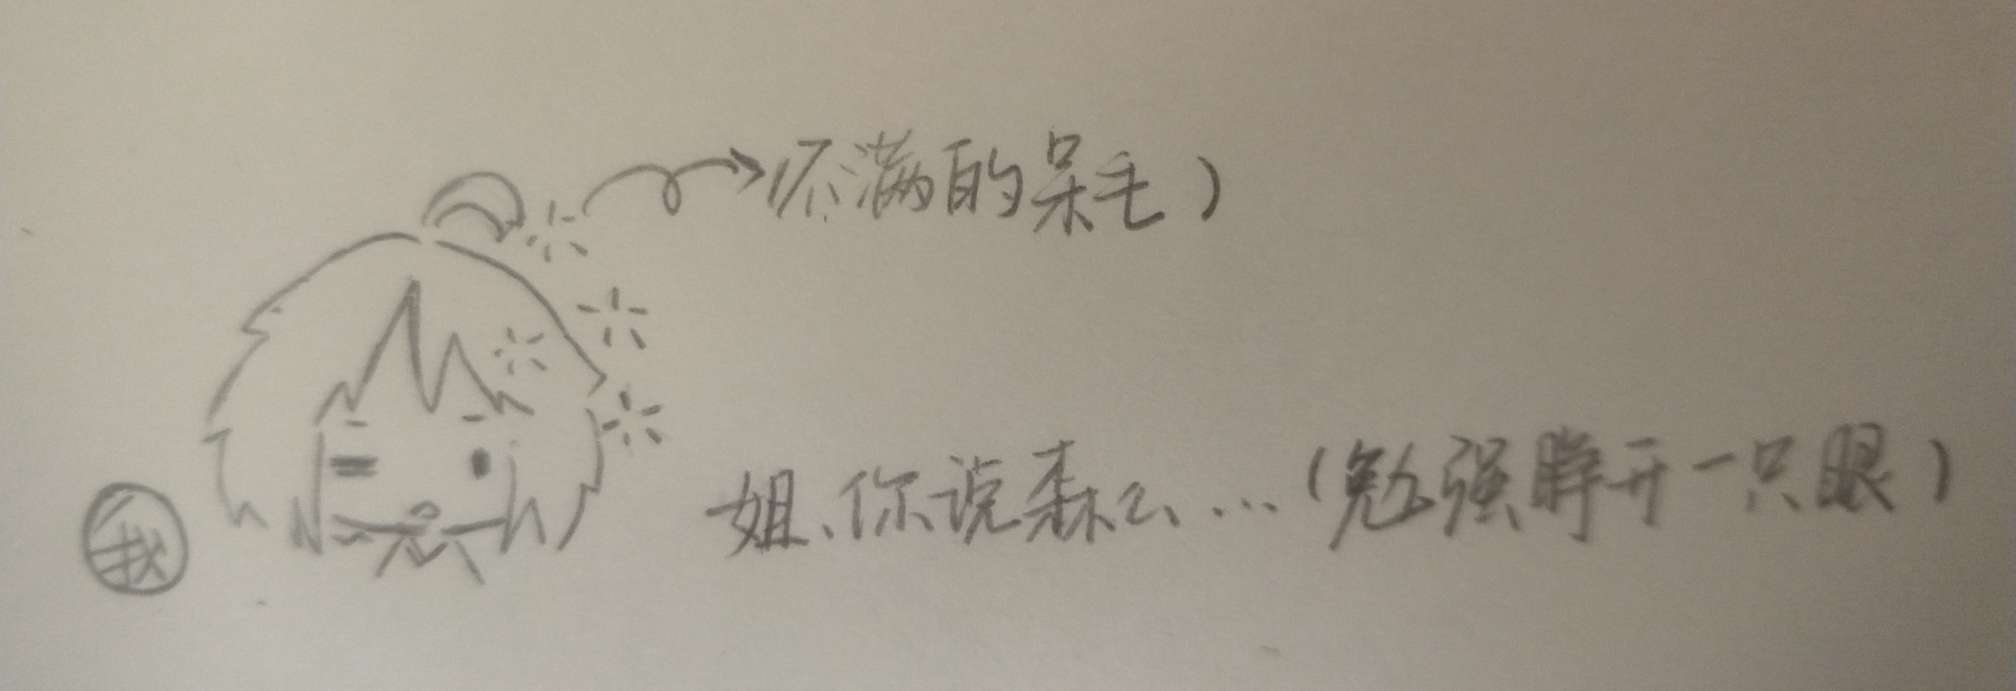 (不满的呆毛)
姐、你说森么...(勉强睁开一只眼)
我